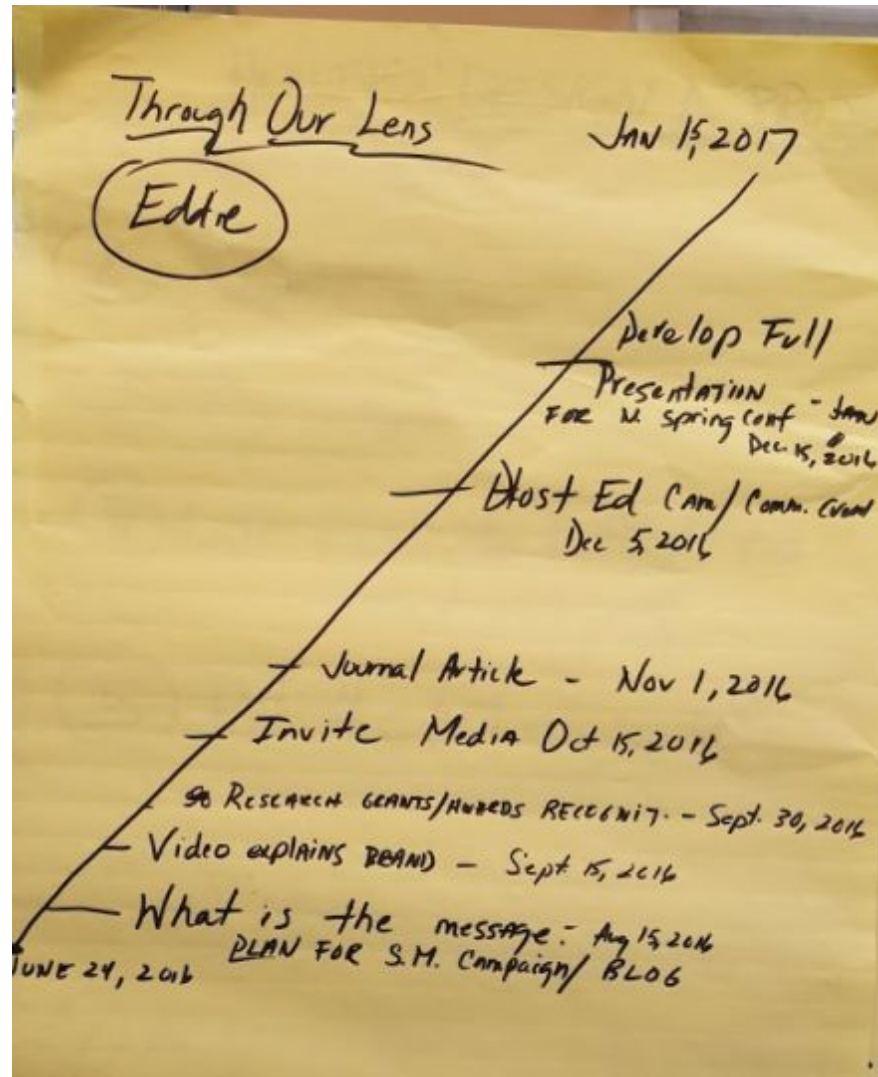 Through Our Lens
JAN 15, 2017
Eddie
Develop Full
Presentation
FOR N. Spring Conf - JAN
Dec 15, 2016
Host Ed Cam/Comm. Event
Dec 5, 2016
Journal Article - Nov 1, 2016
Invite Media Oct 15, 2016
RESEARCH GRANTS/AWARDS RECOGNIT. - Sept. 30, 2016
Video explains BRAND - Sept 15, 2016
What is the message: Aug 15, 2016
PLAN FOR S.M. Campaign/BLOG
JUNE 24, 2016